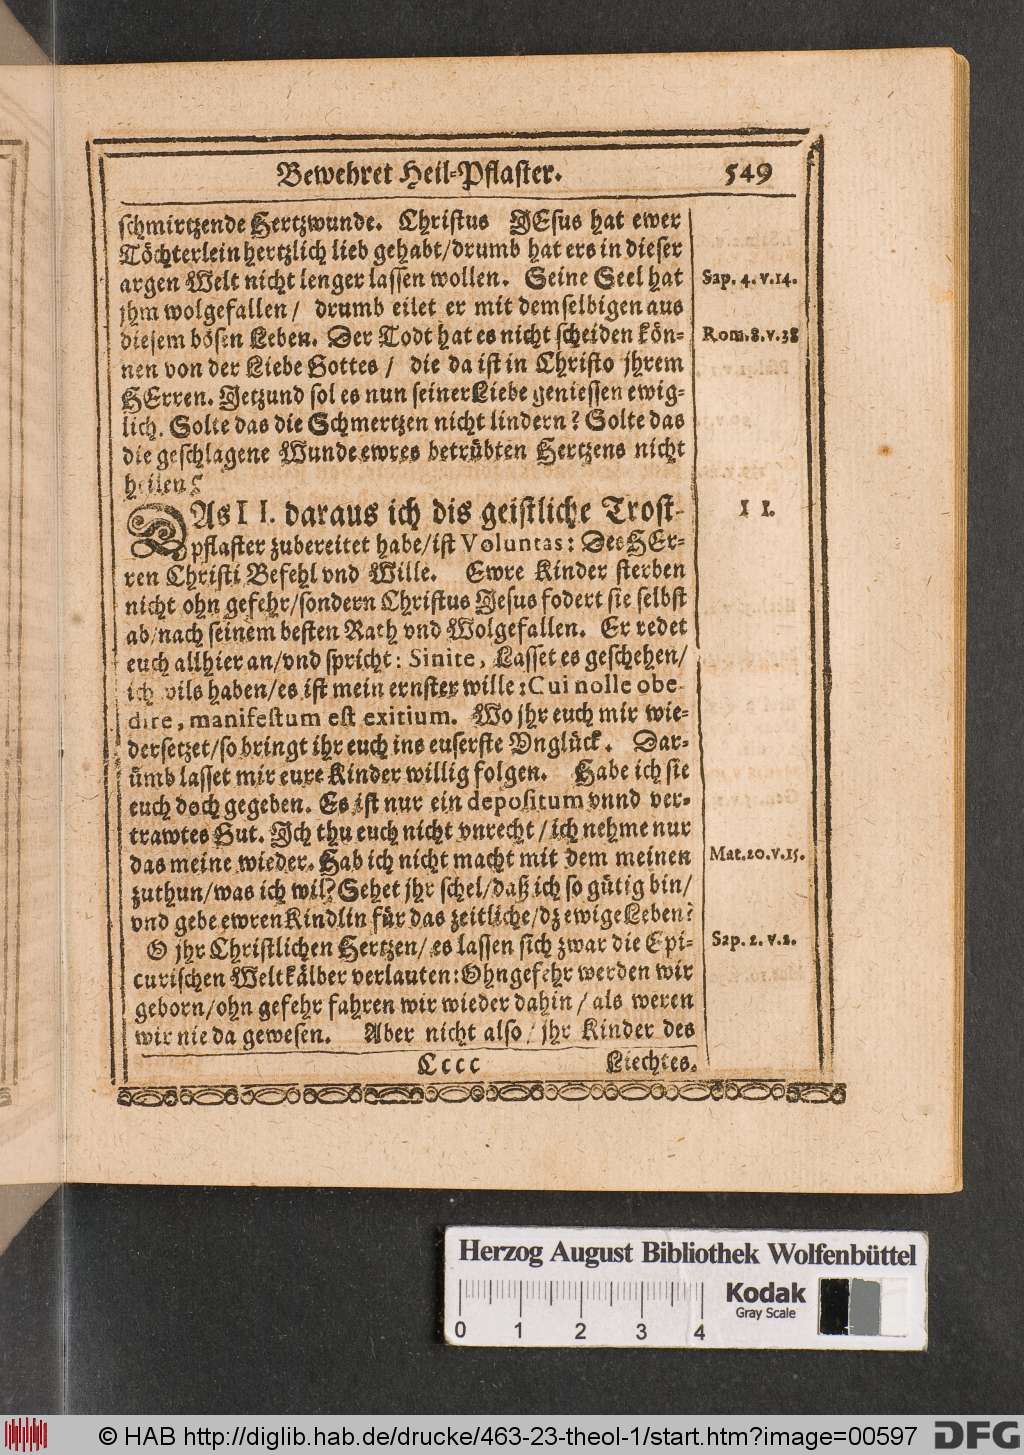 Bewehret Heil-Pflaster. 549
schmirtzende Hertzwunde. Christus JEsus hat ewer
Töchterlein hertzlich lieb gehabt/drumb hat ers in dieser
argen Welt nicht lenger lassen wollen. Seine Seel hat
Sap. 4. v. 14.
jhm wolgefallen/ drumb eilet er mit demselbigen aus
diesem bösen Leben. Der Todt hat es nicht scheiden kön-
Rom. 8. v. 38
nen von der Liebe Gottes / die da ist in Christo jhrem
HErren. Jetzund sol es nun seiner Liebe geniessen ewig-
lich. Solte das die Schmertzen nicht lindern? Solte das
die geschlagene Wunde ewres betrübten Hertzens nicht
heilen?
DAs II. daraus ich dis geistliche Trost-
II.
pflaster zubereitet habe/ist Voluntas: Des HEr-
ren Christi Befehl vnd Wille. Ewre Kinder sterben
nicht ohn gefehr/sondern Christus Jesus fodert sie selbst
ab/nach seinem besten Rath vnd Wolgefallen. Er redet
euch allhier an/vnd spricht: Sinite, Lasset es geschehen/
ich wils haben/es ist mein ernster wille: Cui nolle obe-
dire, manifestum est exitium. Wo jhr euch mir wie-
dersetzet/so bringt ihr euch ins euserste Vnglück. Dar-
ümb lasset mir eure Kinder willig folgen. Habe ich sie
euch doch gegeben. Es ist nur ein depositum vnnd ver-
trawtes Gut. Jch thu euch nicht vnrecht / ich nehme nur
das meine wieder. Hab ich nicht macht mit dem meinen
Mat. 20. v. 15.
zuthun/was ich wil? Sehet jhr schel/daß ich so gütig bin/
vnd gebe ewren Kindlin für das zeitliche/dz ewige Leben?
O jhr Christlichen Hertzen/ es lassen sich zwar die Epi-
Sap. 2. v. 2.
curischen Weltkälber verlauten: Ohngefehr werden wir
geborn/ohn gefehr fahren wir wieder dahin / als weren
wir nie da gewesen. Aber nicht also / jhr Kinder des
Cccc Liechtes.
Herzog August Bibliothek Wolfenbüttel
Kodak
Gray Scale
0 1 2 3 4
© HAB http://diglib.hab.de/drucke/463-23-theol-1/start.htm?image=00597
DFG